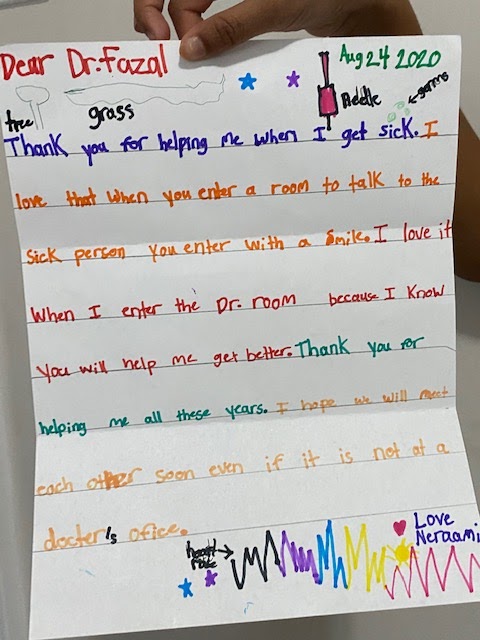 Dear Dr. Fazal
Aug 24 2020
tree
grass
Needle
germs
Thank you for helping me when I get sick. I
love that when you enter a room to talk to the
sick person you enter with a smile. I love it
When I enter the Dr. room because I know
you will help me get better. Thank you for
helping me all these years. I hope we will meet
each other soon even if it is not at a
docter's ofice.
heart
rate
Love
Neraami